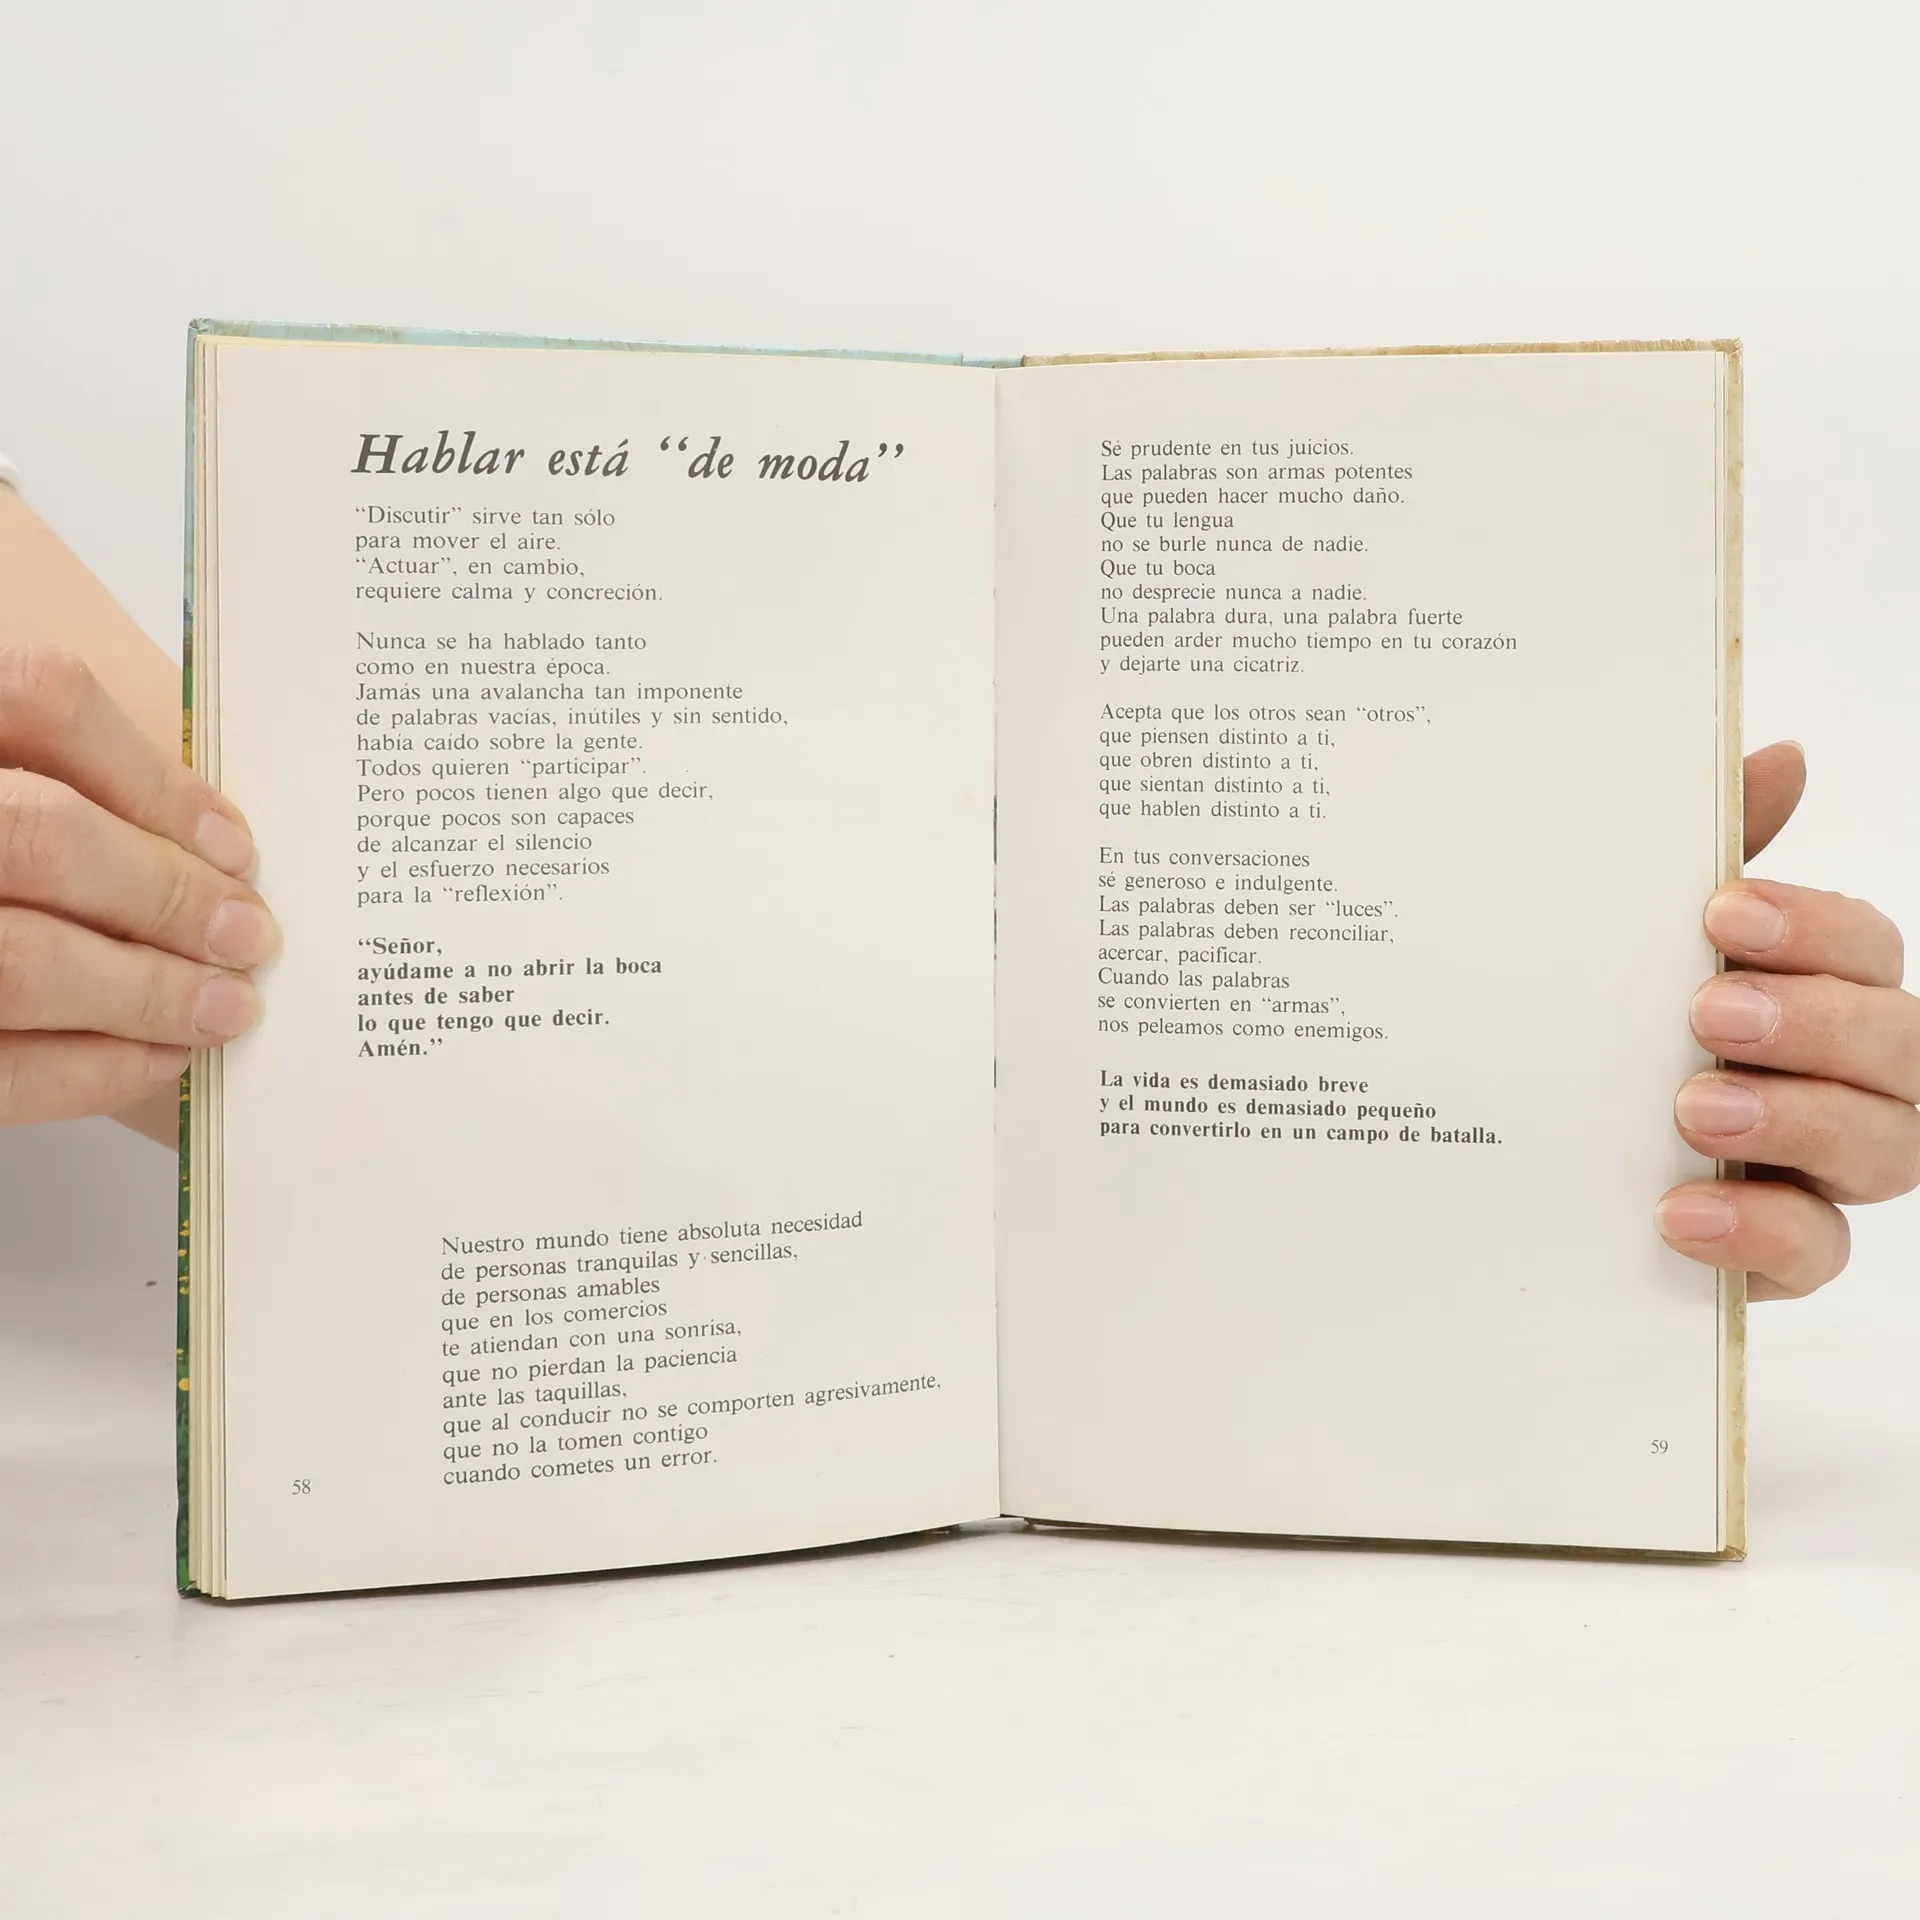 Hablar está “de moda”
“Discutir” sirve tan sólo
para mover el aire.
“Actuar”, en cambio,
requiere calma y concreción.
Nunca se ha hablado tanto
como en nuestra época.
Jamás una avalancha tan imponente
de palabras vacías, inútiles y sin sentido,
había caído sobre la gente.
Todos quieren “participar”.
Pero pocos tienen algo que decir,
porque pocos son capaces
de alcanzar el silencio
y el esfuerzo necesarios
para la “reflexión”.
“Señor,
ayúdame a no abrir la boca
antes de saber
lo que tengo que decir.
Amén.”
Nuestro mundo tiene absoluta necesidad
de personas tranquilas y sencillas,
de personas amables
que en los comercios
te atiendan con una sonrisa,
que no pierdan la paciencia
ante las taquillas,
que al conducir no se comporten agresivamente,
que no la tomen contigo
cuando cometes un error.
58
Sé prudente en tus juicios.
Las palabras son armas potentes
que pueden hacer mucho daño.
Que tu lengua
no se burle nunca de nadie.
Que tu boca
no desprecie nunca a nadie.
Una palabra dura, una palabra fuerte
pueden arder mucho tiempo en tu corazón
y dejarte una cicatriz.
Acepta que los otros sean “otros”,
que piensen distinto a ti,
que obren distinto a ti,
que sientan distinto a ti,
que hablen distinto a ti.
En tus conversaciones
sé generoso e indulgente.
Las palabras deben ser “luces”.
Las palabras deben reconciliar,
acercar, pacificar.
Cuando las palabras
se convierten en “armas”,
nos peleamos como enemigos.
La vida es demasiado breve
y el mundo es demasiado pequeño
para convertirlo en un campo de batalla.
59